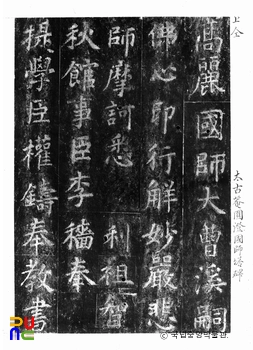 上仝
太古菴圓證國師塔碑
高麗國師大曹溪嗣
佛心即行解妙嚴悲
師摩訶悉 利祖智
秋館事臣李穡奉
提學臣權鑄奉教書
국립중앙박물관